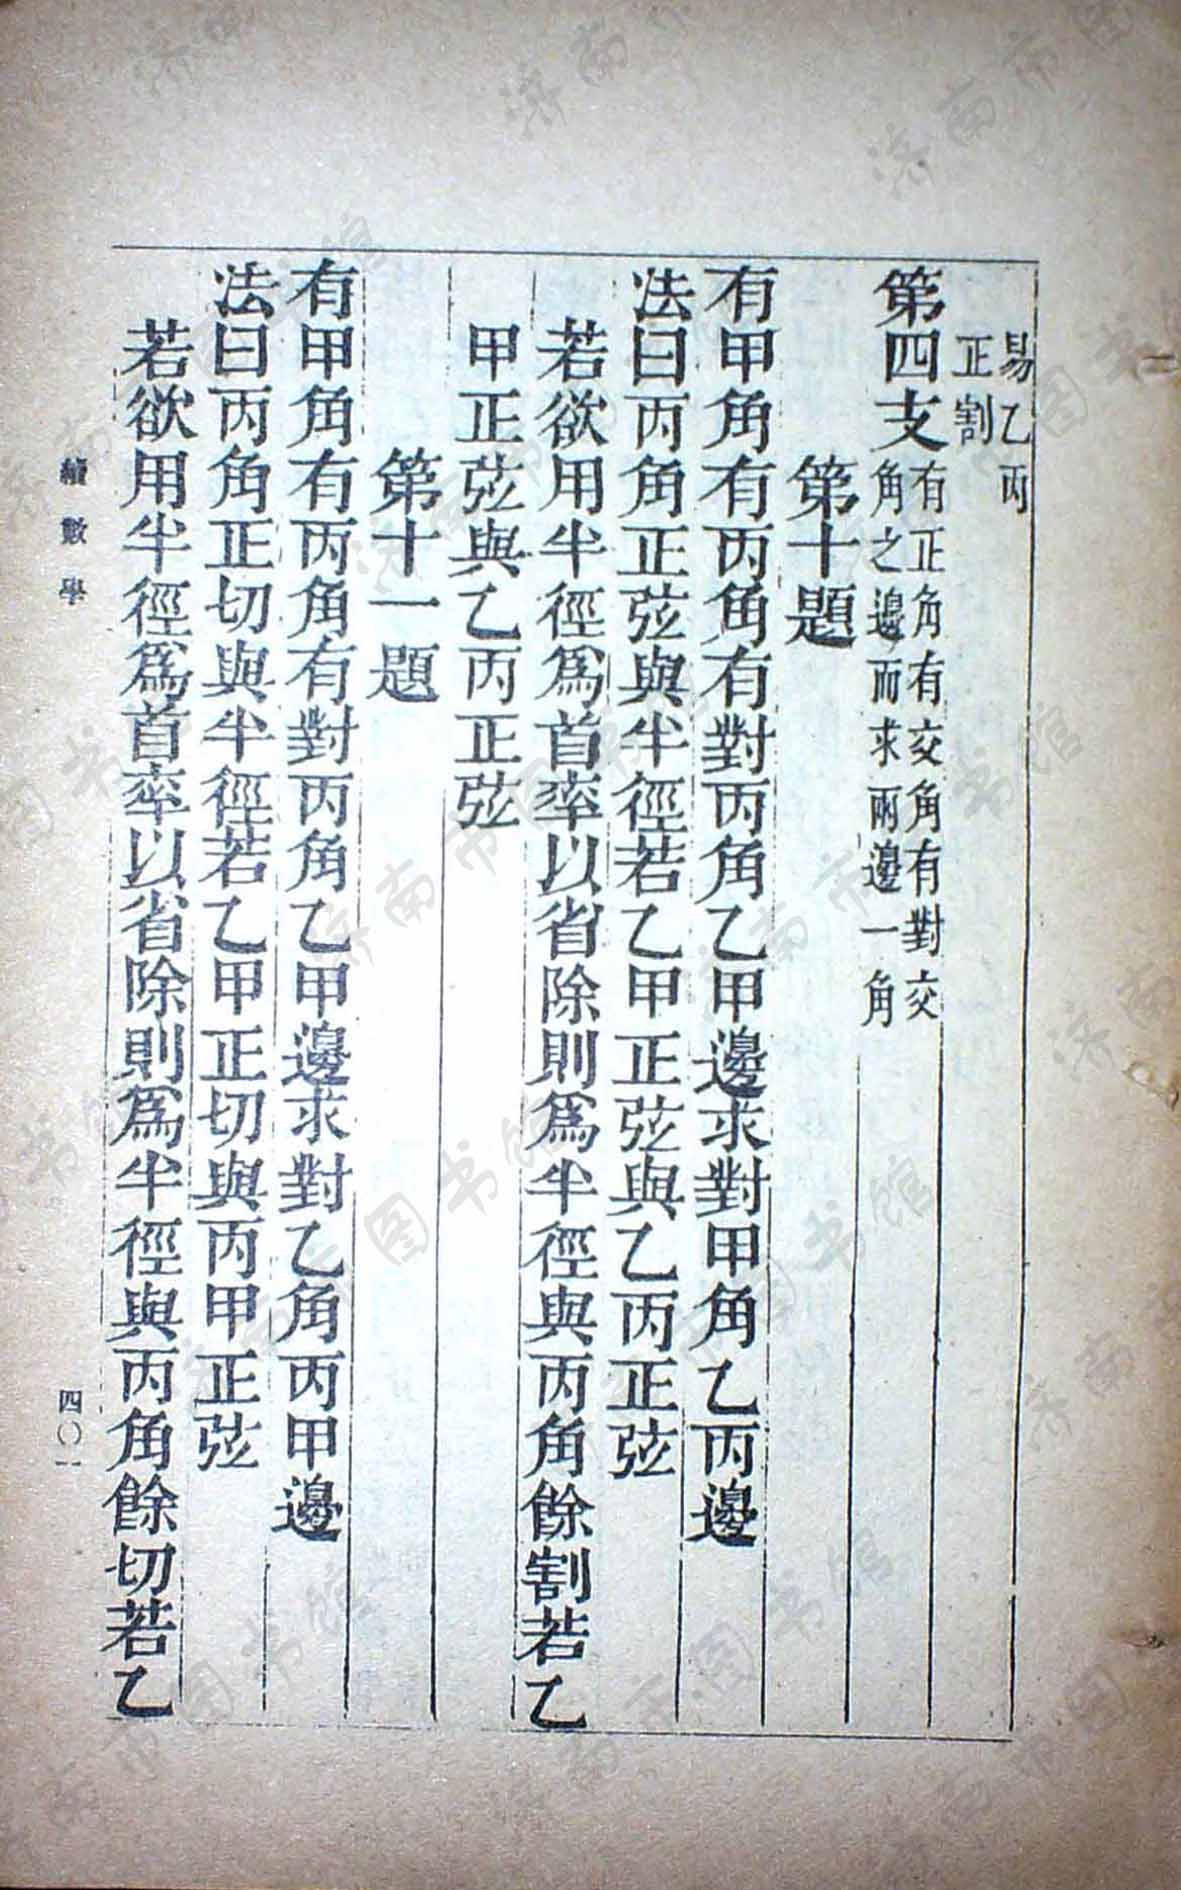 易乙丙
正割
第四支有正角有交角有對交
角之邊而求兩邊一角
第十題
有甲角有丙角有對丙角乙甲邊求對甲角乙丙邊
法曰丙角正弦與半徑若乙甲正弦與乙丙正弦
若欲用半徑爲首率以省除則爲半徑與丙角餘割若乙
甲正弦與乙丙正弦
第十一題
有甲角有丙角有對丙角乙甲邊求對乙角丙甲邊
法曰丙角正切與半徑若乙甲正切與丙甲正弦
若欲用半徑爲首率以省除則爲半徑與丙角餘切若乙
續數學
四〇一
济南市图书馆